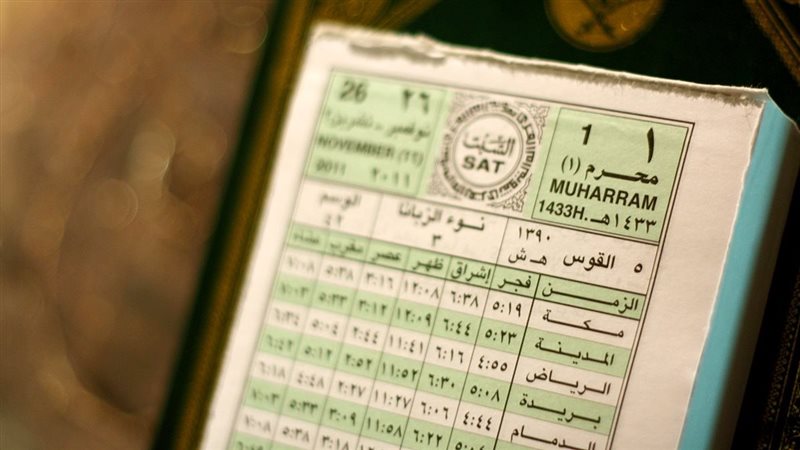 26 ٢٦
نوفمبر - تشرين٢
NOVEMBER (11)
2011 ٢٠١١
السَّبْت
SAT
1 ١
محرم (١)
MUHARRAM
1433H. ١٤٣٣هـ
الوسم
٤٢
نوء الزبانا
٣
١٣٩٠ هـ ش
٥ القوس
الزمن فجر إشراق ظهر عصر مغرب عشاء
مكة ٥:١٩ ٦:٣٨ ١٢:٠٨ ٣:١٦ ٥:٣٨ ٧:٠٨
المدينة ٥:٢٣ ٦:٤٤ ١٢:٠٩ ٣:١٢ ٥:٣٣ ٧:٠٣
الرياض ٤:٥٥ ٦:١٦ ١١:٤١ ٢:٤٤ ٥:٠٤ ٦:٣٤
بريدة ٥:٠٨ ٦:٣٠ ١١:٥٢ ٢:٥٢ ٥:١٢ ٦:٤٢
الدمام ٤:٤٤ ٦:٠٦ ١١:٢٧ ٢:٢٧ ٤:٤٨ ٦:١٨
٦:٢٢ ١١:٥٨ ٣:٠٩ ٥:٣٣ ٧:٠٣